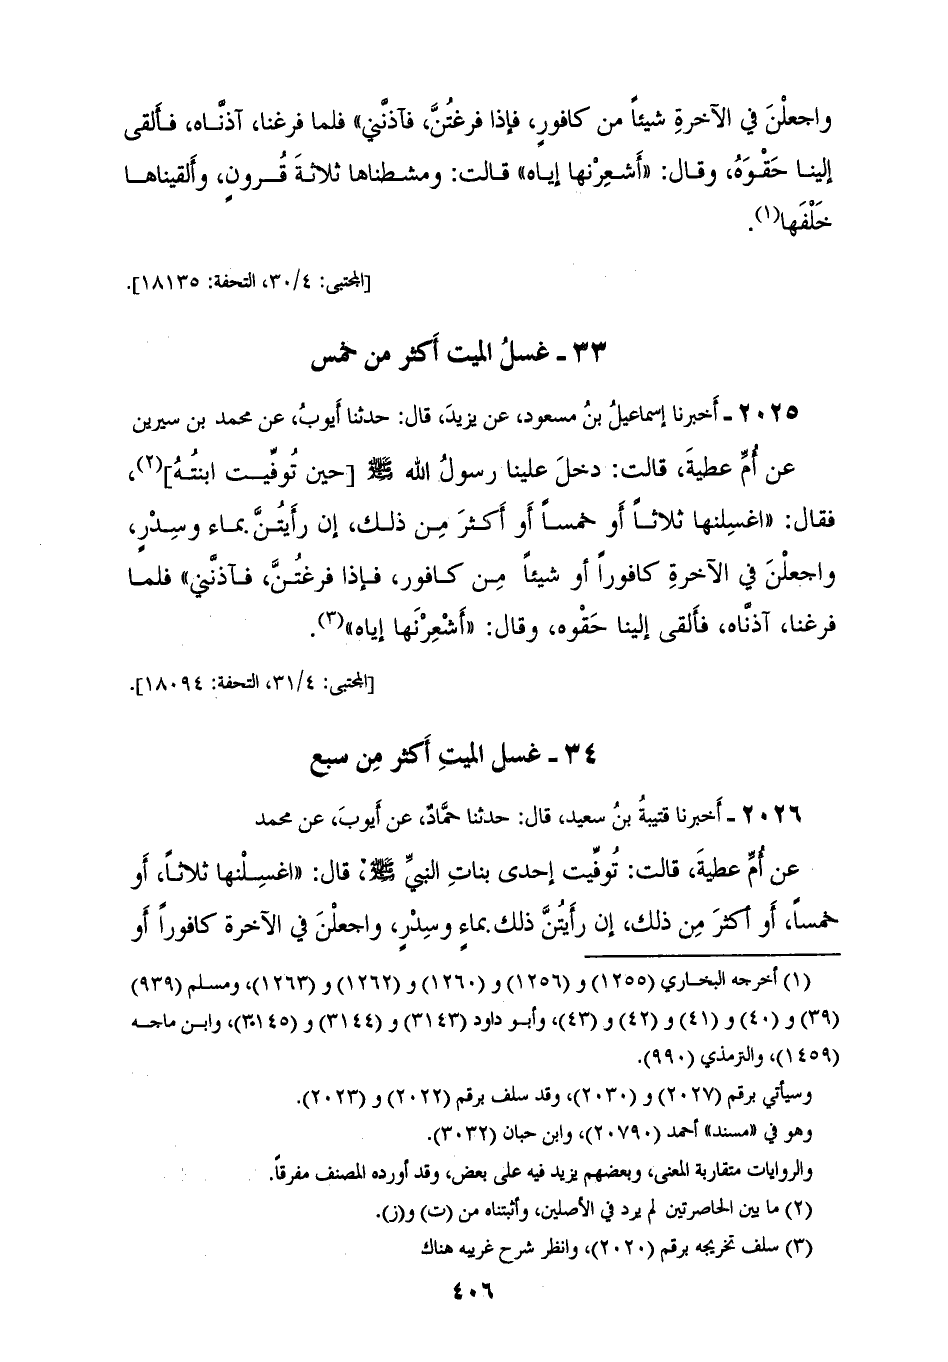 واجعلْنَ في الآخرةِ شيئاً من كافورٍ، فإذا فرغتُنَّ، فآذنَّني» فلما فرغنا، آذنَّاه، فـألقى
إلينـا حَقْـوَهُ، وقـال: «أَشـعِرْنها إياه» قـالت: ومشـطناها ثلاثـةَ قُـرونٍ، وألقيناهـا
خَلْفَها(١).
[المجتبى: ٣٠/٤، التحفة: ١٨١٣٥].
٣٣ ـ غسلُ الميت أكثر من خمس
٢٠٢٥ ـ أخبرنا إسماعيلُ بنُ مسعود، عن يزيدَ، قال: حدثنا أيوبُ، عن محمد بن سيرين
عن أُمِّ عطيةَ، قالت: دخلَ علينا رسولُ الله ﷺ [حين تُوفِّيـت ابنتُهُ](٢)،
فقال: «اغسِلنها ثلاثـاً أو خمسـاً أو أكثـرَ مِـن ذلـك، إن رأيتُـنَّ.بمـاء وسِـدْرٍ،
واجعلْنَ في الآخرةِ كافوراً أو شيئاً مِـن كـافور، فـإذا فرغتُـنَّ، فـآذنَّني» فلمـا
فرغنا، آذنَّاه، فألقى إلينا حَقْوه، وقال: «أَشْعِرْنَها إياه»(٣).
[المجتبى: ٣١/٤، التحفة: ١٨٠٩٤].
٣٤ ـ غسل الميتِ أكثر مِن سبع
٢٠٢٦ ـ أخبرنا قتيبةُ بنُ سعيد، قال: حدثنا حمَّادٌ، عن أيوبَ، عن محمد
عن أُمِّ عطيةَ، قالت: تُوفِّيت إحدى بناتِ النبيِّ ﷺ، قال: «اغسِـلْنها ثلاثـاً، أو
خمساً، أو أكثرَ مِن ذلك، إن رأيتُنَّ ذلك.بماءٍ وسِدْرٍ، واجعلْنَ في الآخرة كافوراً أو
(١) أخرجه البخـاري (١٢٥٥) و (١٢٥٦) و (١٢٦٠) و (١٢٦٢) و (١٢٦٣)، ومسـلم (٩٣٩)
(٣٩) و (٤٠) و (٤١) و (٤٢) و (٤٣)، وأبـو داود (٣١٤٣) و (٣١٤٤) و (٣١٤٥)، وابـن ماجـه
(١٤٥٩)، والترمذي (٩٩٠).
وسيأتي برقم (٢٠٢٧) و (٢٠٣٠)، وقد سلف برقم (٢٠٢٢) و (٢٠٢٣).
وهو في «مسند» أحمد (٢٠٧٩٠)، وابن حبان (٣٠٣٢).
والروايات متقاربة المعنى، وبعضهم يزيد فيه على بعض، وقد أورده المصنف مفرقاً.
(٢) ما بين الحاصرتين لم يرد في الأصلين، وأثبتناه من (ت) و(ز).
(٣) سلف تخريجه برقم (٢٠٢٠)، وانظر شرح غريبه هناك
٤٠٦